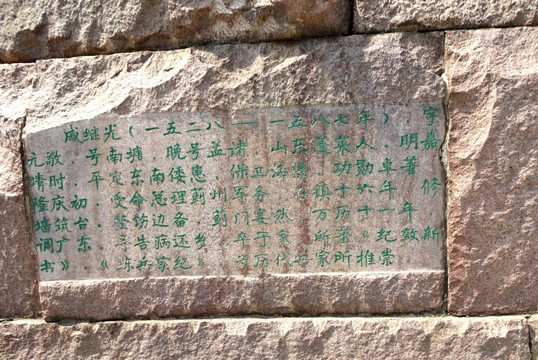 戚继光（一五二八——一五八七年），字
元敬，号南塘，晚号孟诸，山东蓬莱人，明嘉
靖时，平定东南倭患，保卫海疆，功勋卓著
隆庆初，受命总理蓟州军务，在镇十六年，修
墙筑台，整饬边备，蓟门宴然。万历十一年
调广东，告病还乡，卒于家。所著《纪效新
书》、《练兵实纪》为历代兵家所推崇